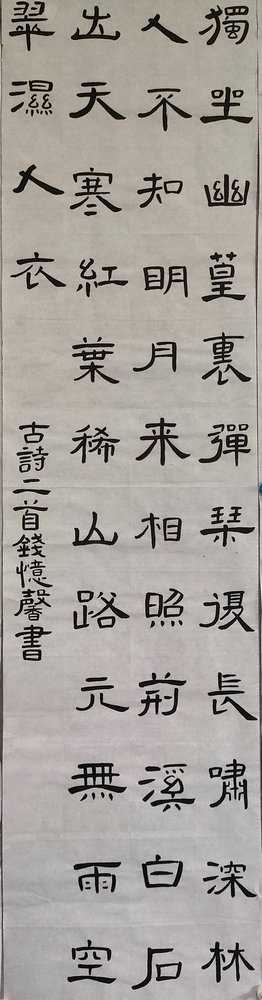 獨坐幽篁裏彈琴復長嘯深林
人不知明月来相照荊溪白石
出天寒紅葉稀山路元無雨空
翠濕人衣
古詩二首錢憶馨書